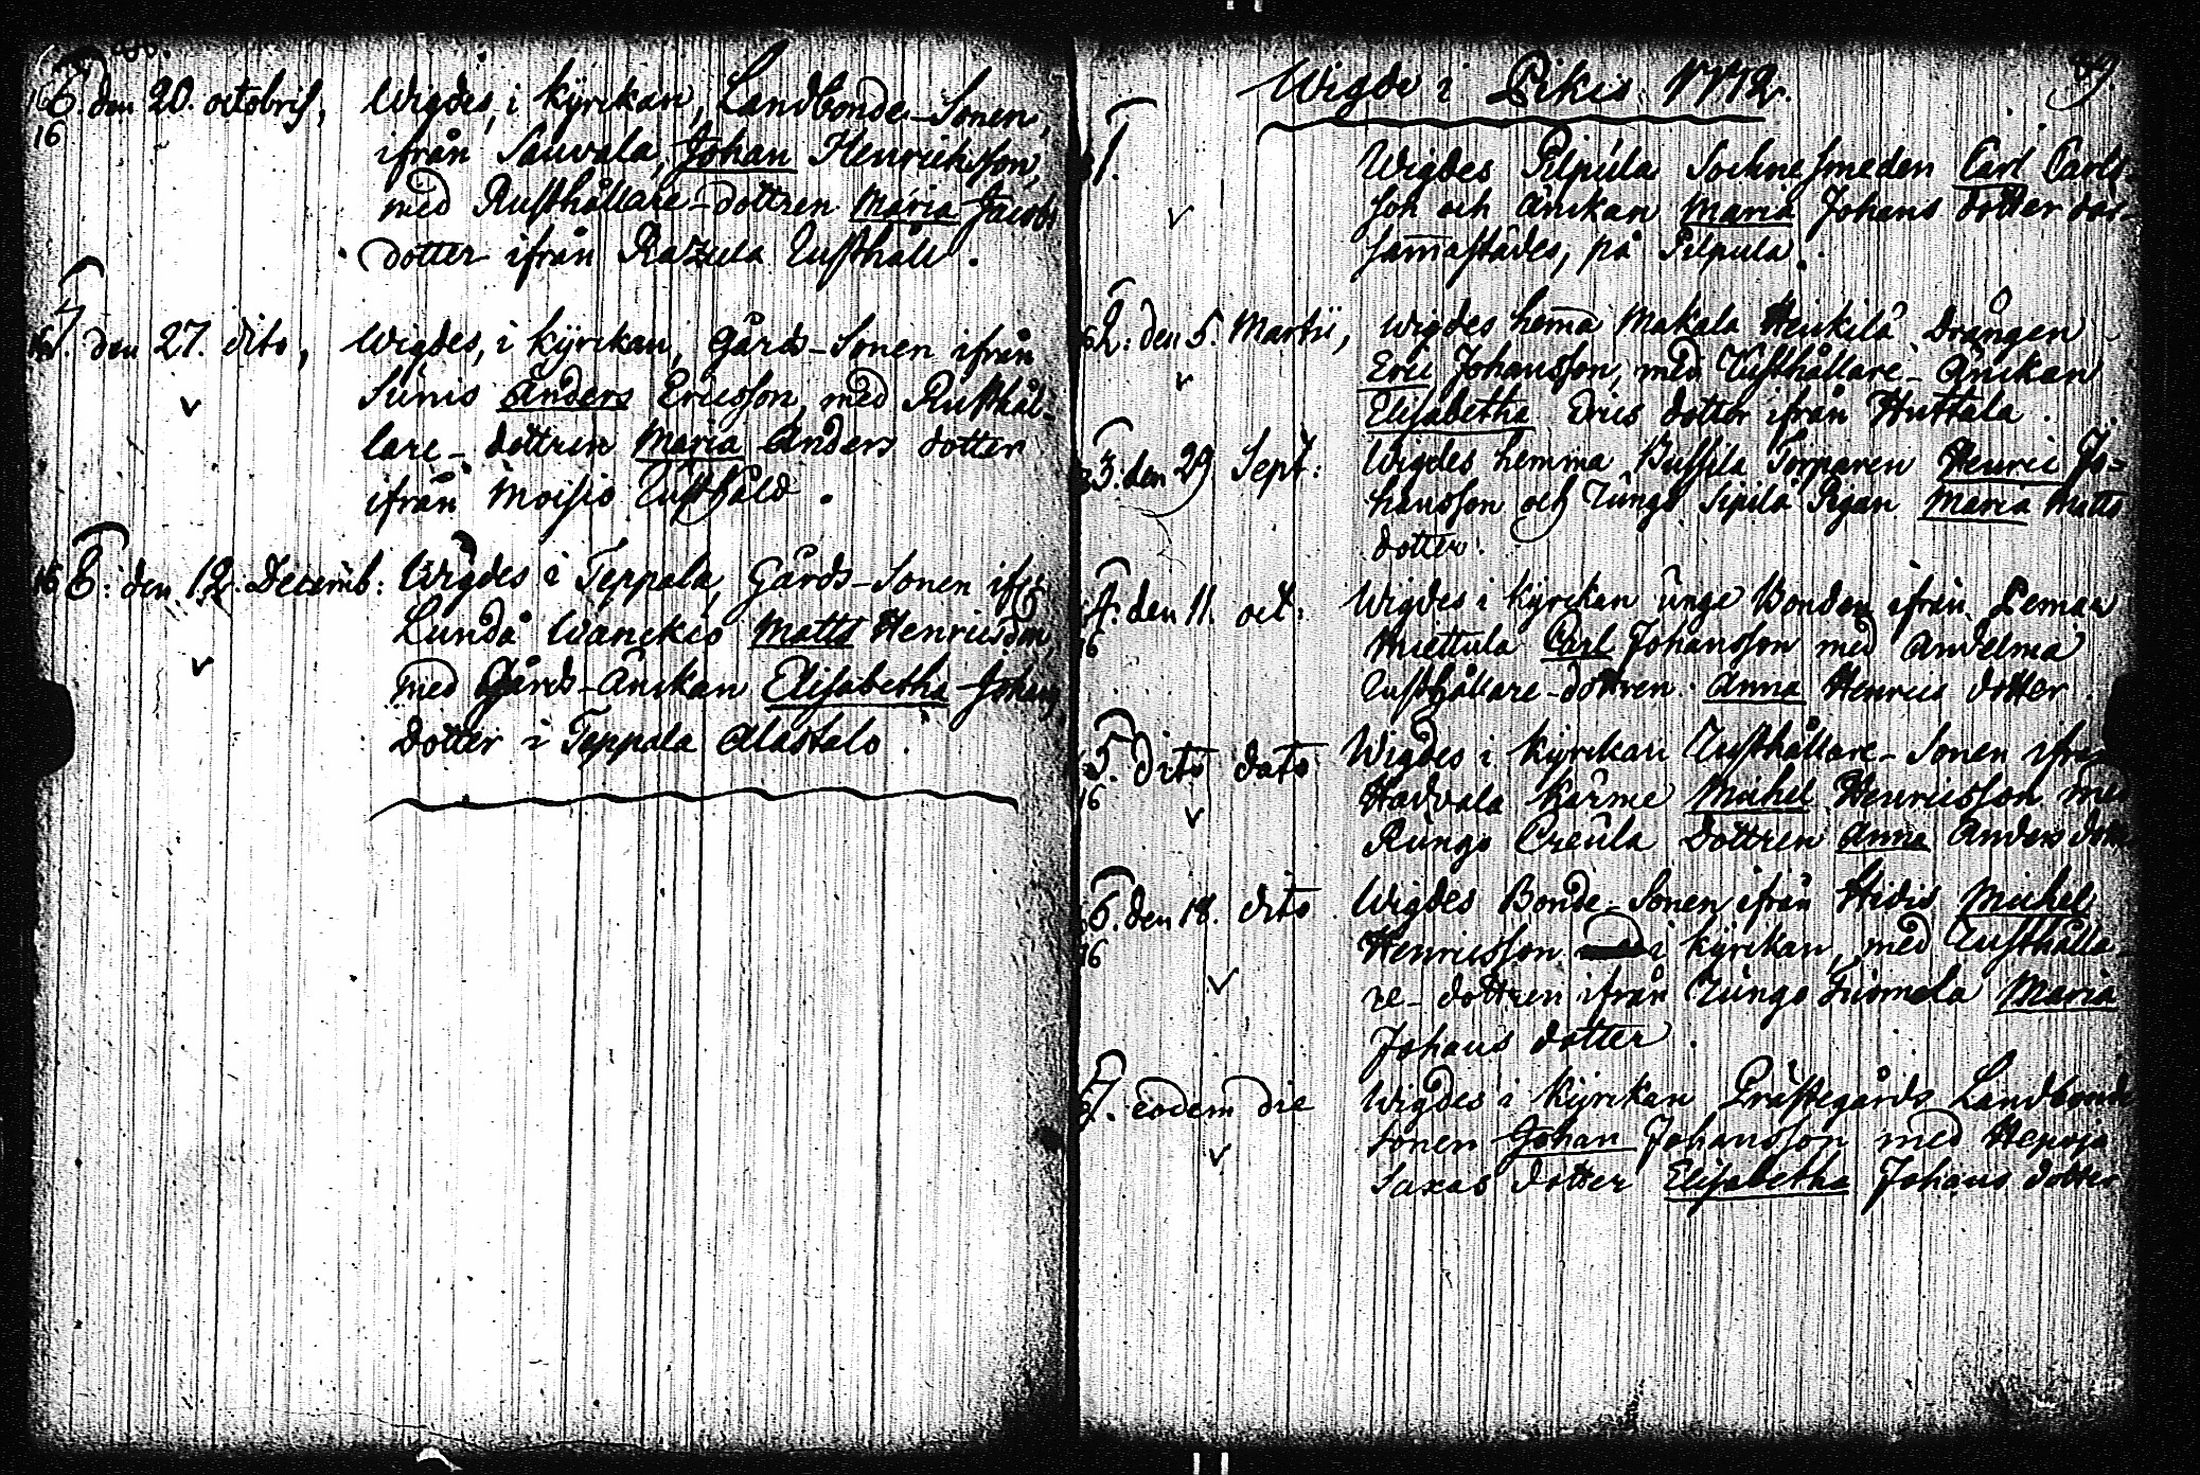 6. den 20. octobris, Wigdes, i kyrckan, Landbonde-Sonen,
16 ifrån Sauvala, Johan Henrichsson,
med Rusthållare-dottren Maria Jacobs
dotter ifrån Rusthåll.
7. den 27. dito, Wigdes, i kyrckan, Gårds-Sonen ifrån
Sunis Anders Ericsson, med Rusthål-
lare-dottren Maria Anders dotter
ifrån Moisio Rusthåld.
16 8: den 12. Decemb: Wigdes i Teppala, Gårds-Sonen
Lundå Wanckis Matts Henricsson,
med Gårds-Änckan Elisabetha Johans
dotter i Teppala Alastalo.
Wigde i Pikis 1772. 49.
1. Wigdes Pilpula Sochnesmeden Carl Carls-
son och Änckan Maria Johans dotter dar-
sam̅astädes, på Pilpula.
2: den 5. Martii, Wigdes hem̅a Makala Heickilä Drängen
Eric Johansson, med Rusthållare-Änckan
Elisabetha Erics dotter ifrån Huttala.
3: den 29 Sept: Wigdes hemma Bussila Torparen Henric Jo-
hansson och Rungo Sipilä Pigan Maria Matts
dotter.
4: den 11. oct: Wigdes i kyrckan unge Bonden ifrån Pemar
16 Carl Johansson med
Rusthållare-dottren Anna Henrics dotter.
5. dito dato Wigdes i kyrckan Rusthållare-Sonen ifrån
16 Hadvala Kärme Michel Henricsson med
Rungo Creula Dottren Anna Anders dott.
6. den 18. dito Wigdes Bonde-Sonen ifrån Hidis Michel
16 Henricsson i kyrckan, med Rusthålla-
re-dottren ifrån Rungo Tuomola Maria
Johans dotter.
7. eodem die Wigdes i kyrckan Prästegårds Landbonde
sonen Johan Johansson med
Saxas dotter Elisabetha Johans dotter